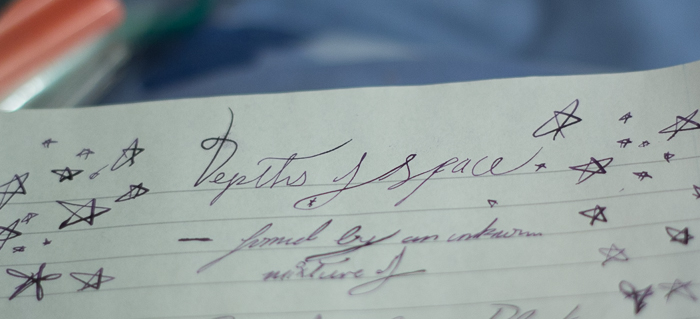 Depths of Space
— formed by an unknown
mixture of